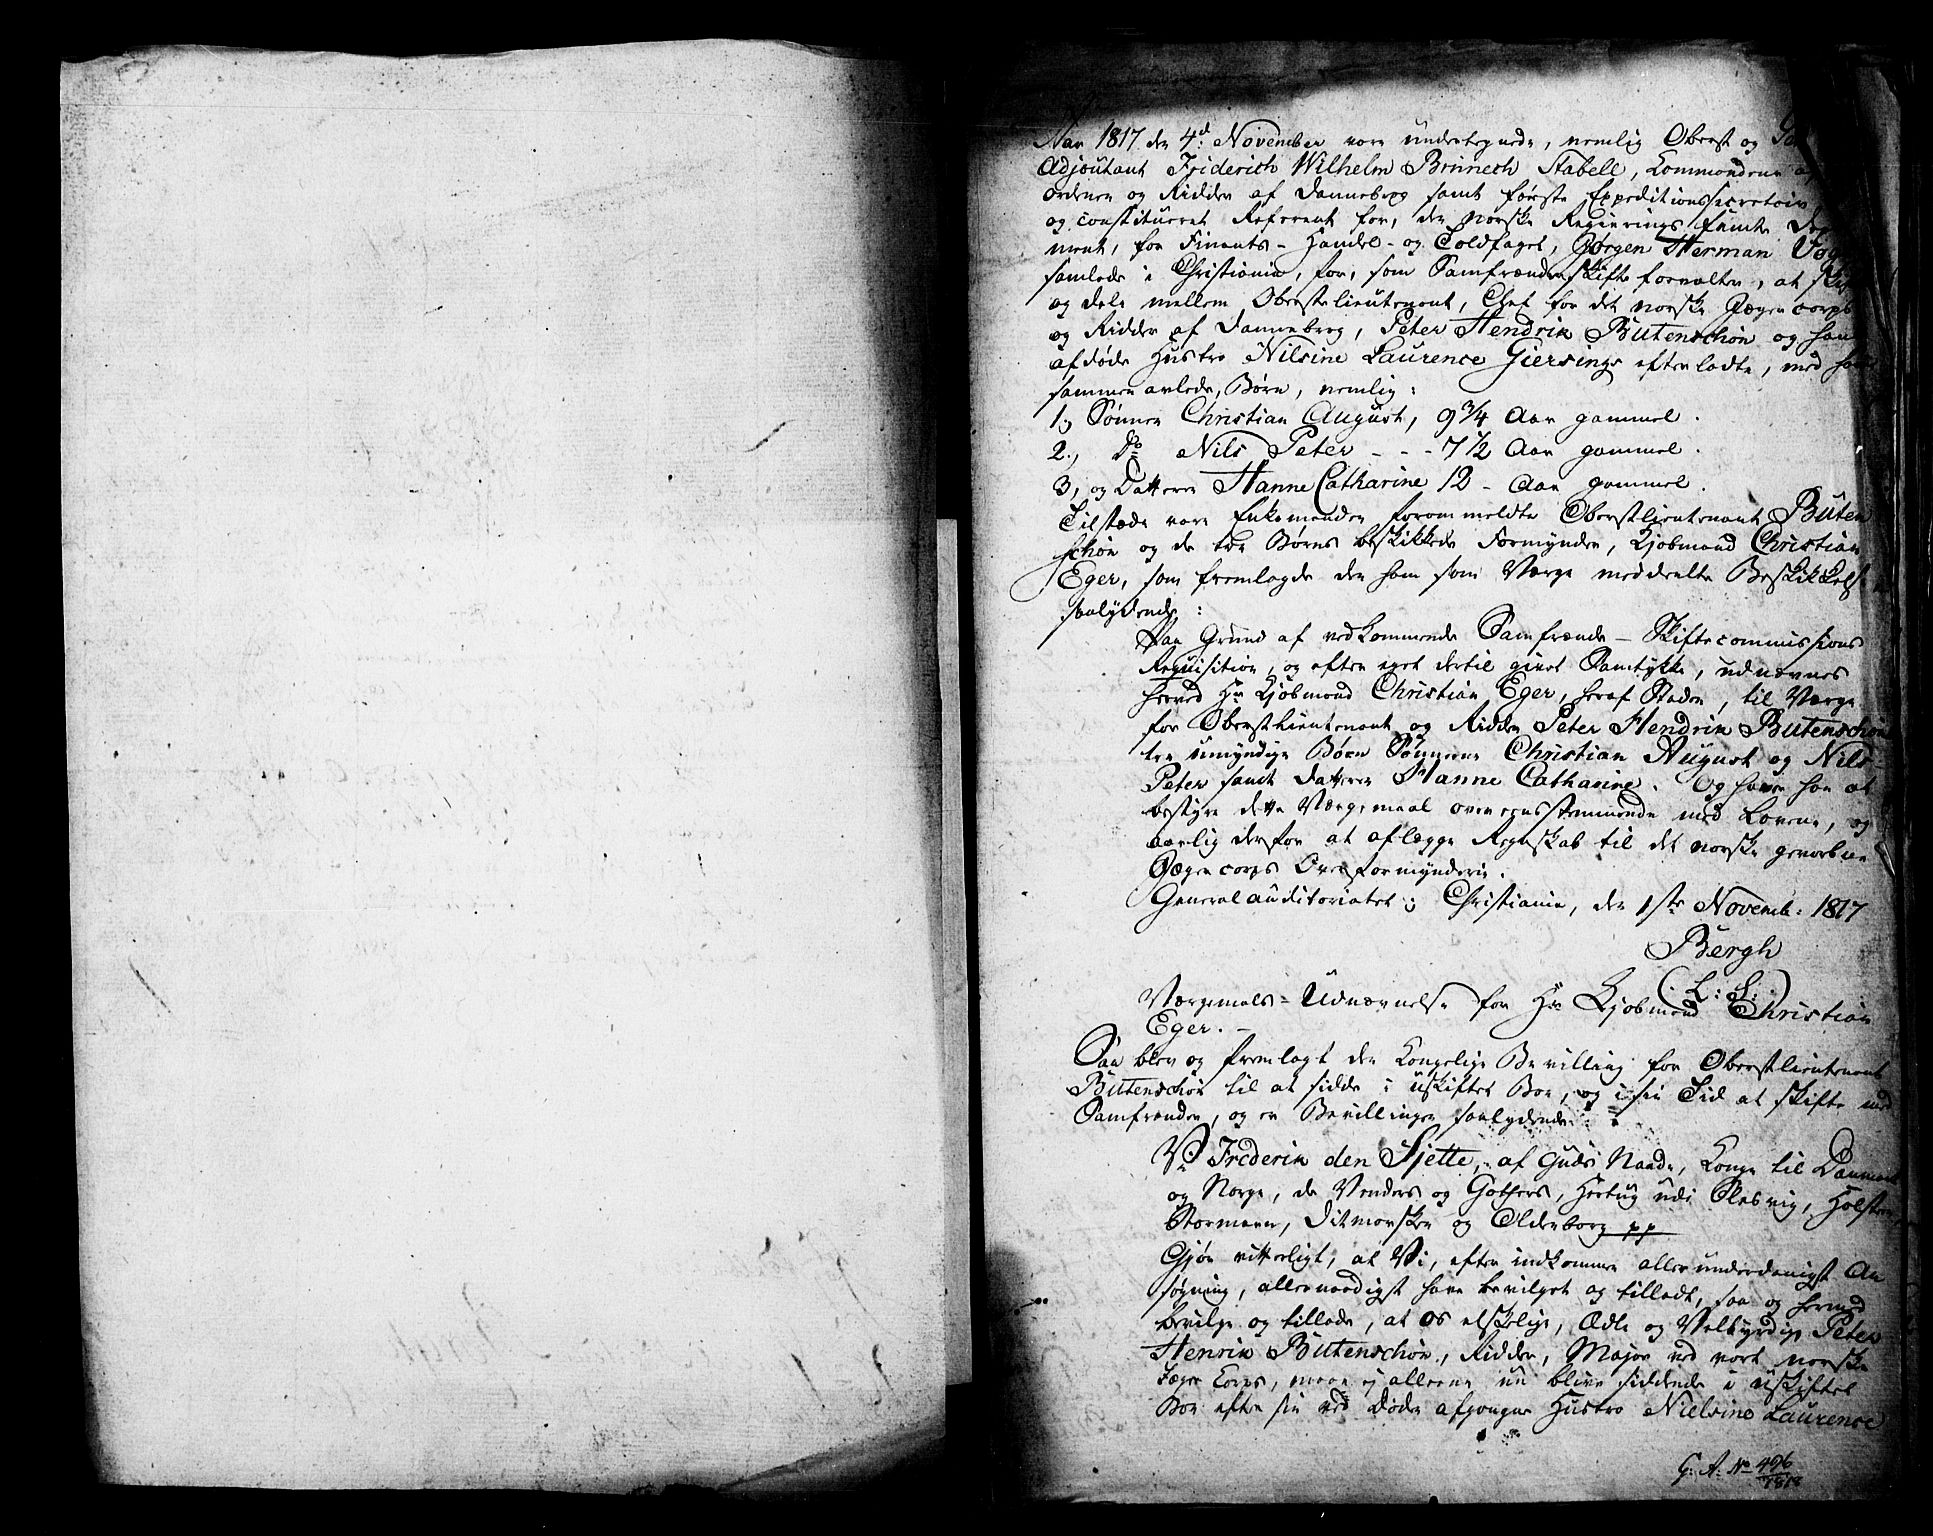 Aar 1817 den 4d: November vare undertegnede, nemlig Oberst og
Adjoutant Friderich Wilhelm Brünnech Stabell, Kommandeur af
Ordenen og Ridder af Danneborg samt første Expeditionssecretair
og constitueret Referent for, den norske Regjerings femte De
ment, for Finants- Handel- og Toldfaget, Jørgen Herman Vogt
samlede i Christiania, for, som Samfrænderskifteforvaltere, at skifte
og dele mellem Oberstelieutenant, Chef for det norske Jægercorps
og Ridder af Danneborg, Peter Hendrik Butenschøn og hans
afdøde Hustro Nilsine Laurence Giersings efterladte, med ham
sammen avlede, Børn, nemlig:
1, Sønnen Christian August, 9 3/4 Aar gammel.
2, Do Nils Peter - - - 7 1/2 Aar gammel.
3, og Datteren Hanne Catharine 12 - Aar gammel.
Tilstæde vare Enkemanden forommeldte Oberstlieutenant Buten
schøn og de tre Børns beskikkede Formynder, Kjøbmand Christian
Eger, som fremlagde den ham som Værge meddeelte Beskikkelse
saalydende:
Paa Grund af vedkommende Samfrænde-Skiftecommissions
Requisition, og efter eget dertil givet Samtykke, udnævnes
herved Hr Kjøbmand Christian Eger, heraf Staden, til Værge
for Oberstlieutenant og Ridder Peter Hendrik Butenschøns
tre umyndige Børn Sønnerne Christian August og Nils
Peter samt Datteren Hanne Catharine. Og haver han at
bestyre dette Værgemaal overeensstemmende med Lovene, og
aarlig derfor at aflægge Regnskab til det norske gevorbne
Jægercorps Overformynderie.
Generalauditoriatet i Christiania, den 1ste Novemb: 1817
Bergh
(L: S:)
Værgemaals-Udnævnelse for Hr Kjøbmand Christian
Eger. -
Saa blev og fremlagt den Kongelige Bevilling for Oberstlieutenant
Butenschøn til at sidde i uskiftet Boe, og i sin Tid at skifte med
Samfrender, og er Bevillingen saalydende:
Vi Frederik den Sjette, af Guds Naade, Konge til Danmark
og Norge, de Venders og Gothers, Hertug udi Slesvig, Holsten,
Stormarn, Ditmarsken og Oldenborg pp
Gjør vitterligt, at Vi, efter indkommen allerunderdanigst An
søgning, allernaadigst have bevilget og tilladt, saa og hermed
bevilge og tillade, at os elskelige, Ædle og Velbyrdige Peter
Henrik Butenschøn, Ridder, Major ved vort norske
Jæger Corps, maae ej alleene nu blive siddende i uskiftet
Boe efter sin ved Døden afgangne Hustro Nielsine Laurence
G: A: No 496
1818